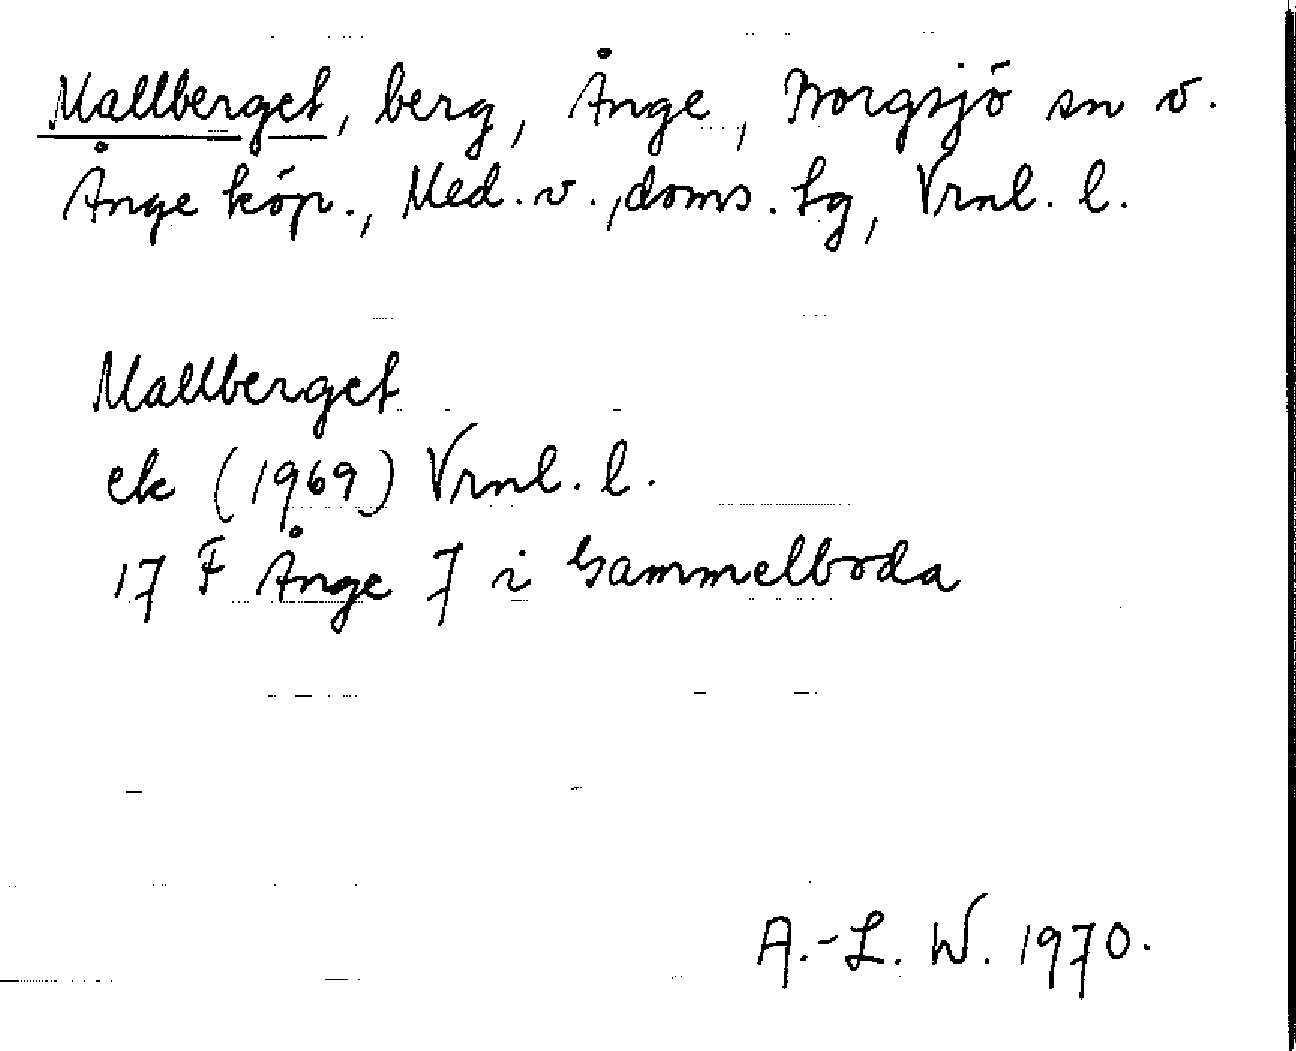 Mallberget, berg, Ånge, Borgsjö sn v.
Ånge köp., Med. v., doms. tg, Vrnl. l.
Mallberget
ek (1969) Vrnl. l.
17 F Ånge 7 i Gammelboda
A.-L. W. 1970.